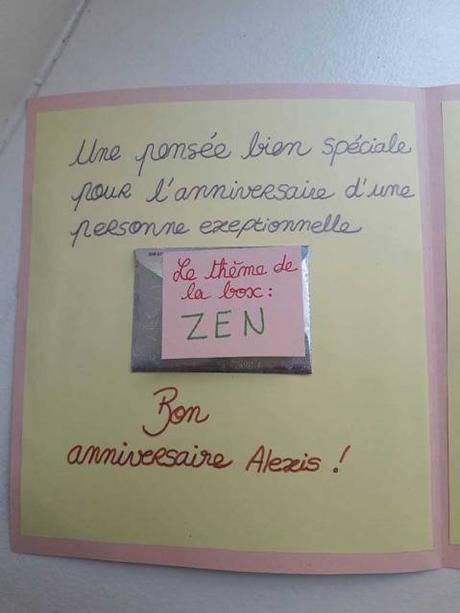 Une pensée bien spéciale
pour l'anniversaire d'une
personne exeptionnelle
Le thème de
la box :
ZEN
Bon
anniversaire Alexis !